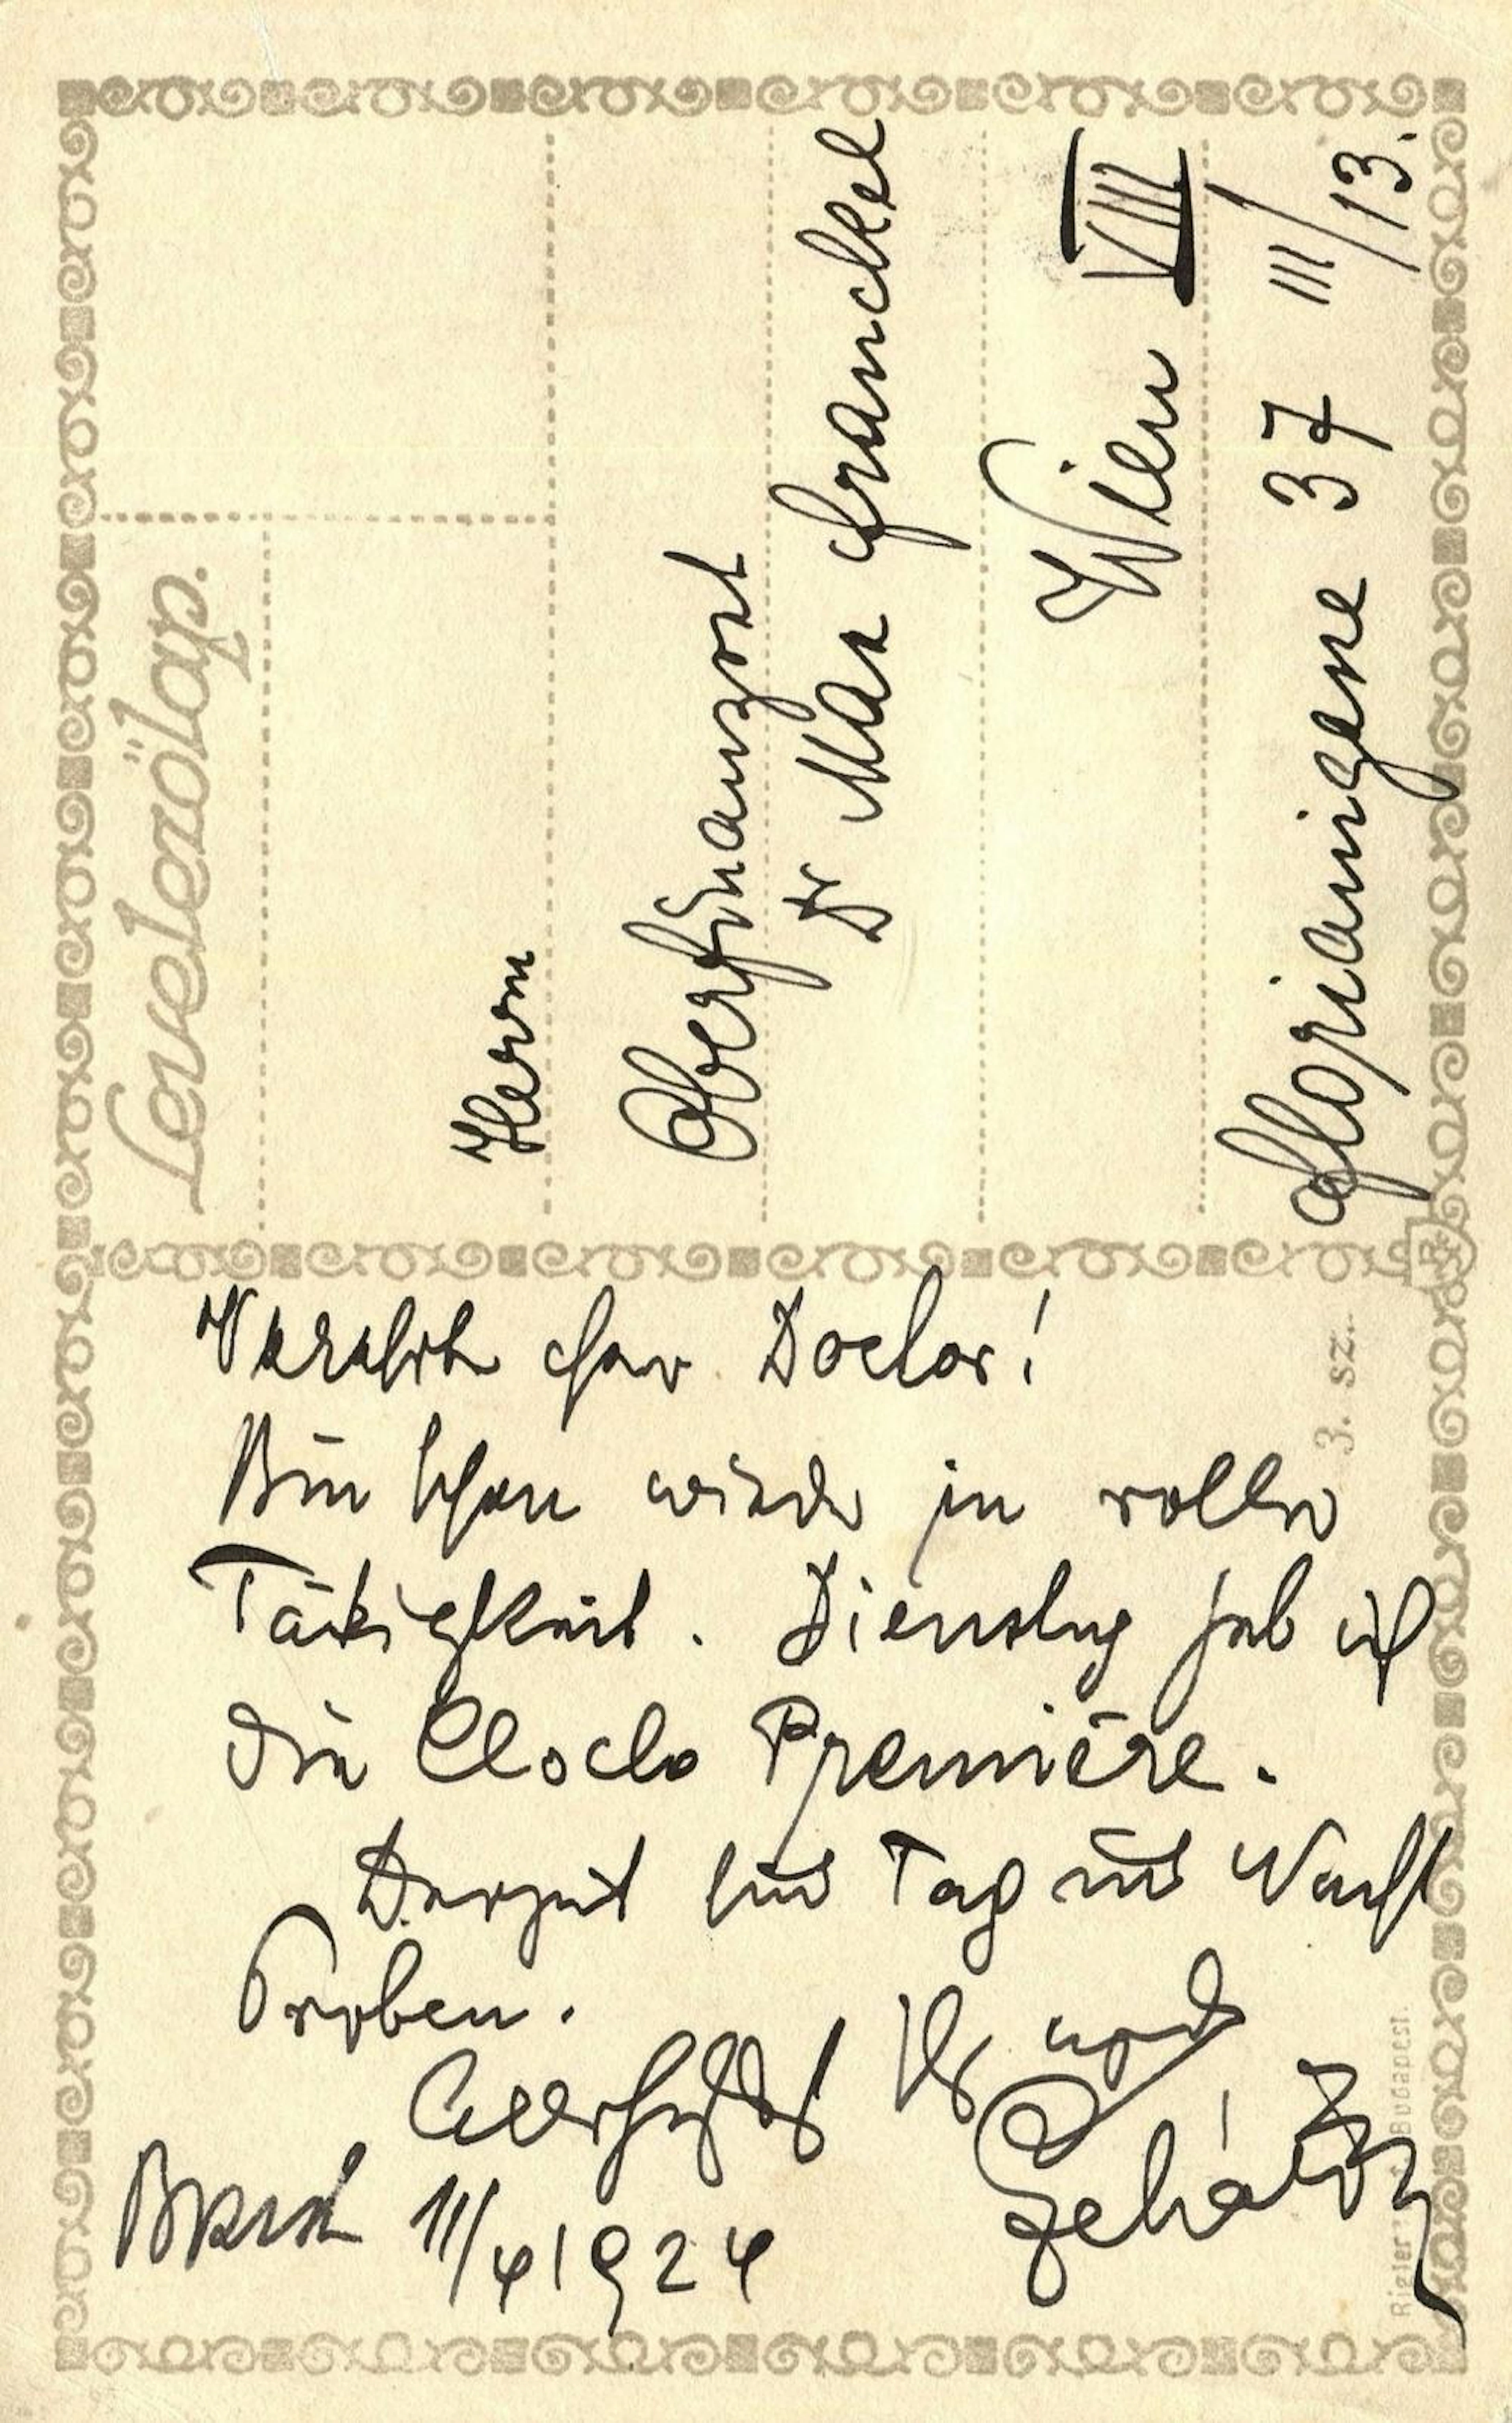 Levelezőlap.
Herrn
Oberfinanzrat
Dr Max Franckel
Wien VIII
Florianigasse 37 III/13.
3. sz.
Verehrter Herr Doctor!
Bin schon wieder in voller
Tätigkeit. Dienstag hab ich
die Cloclo Première.
Derzeit sind Tag und Nacht
Proben.
Allerherzlichst Ihr
Lehár
11/4 1924
Rigler Budapest.